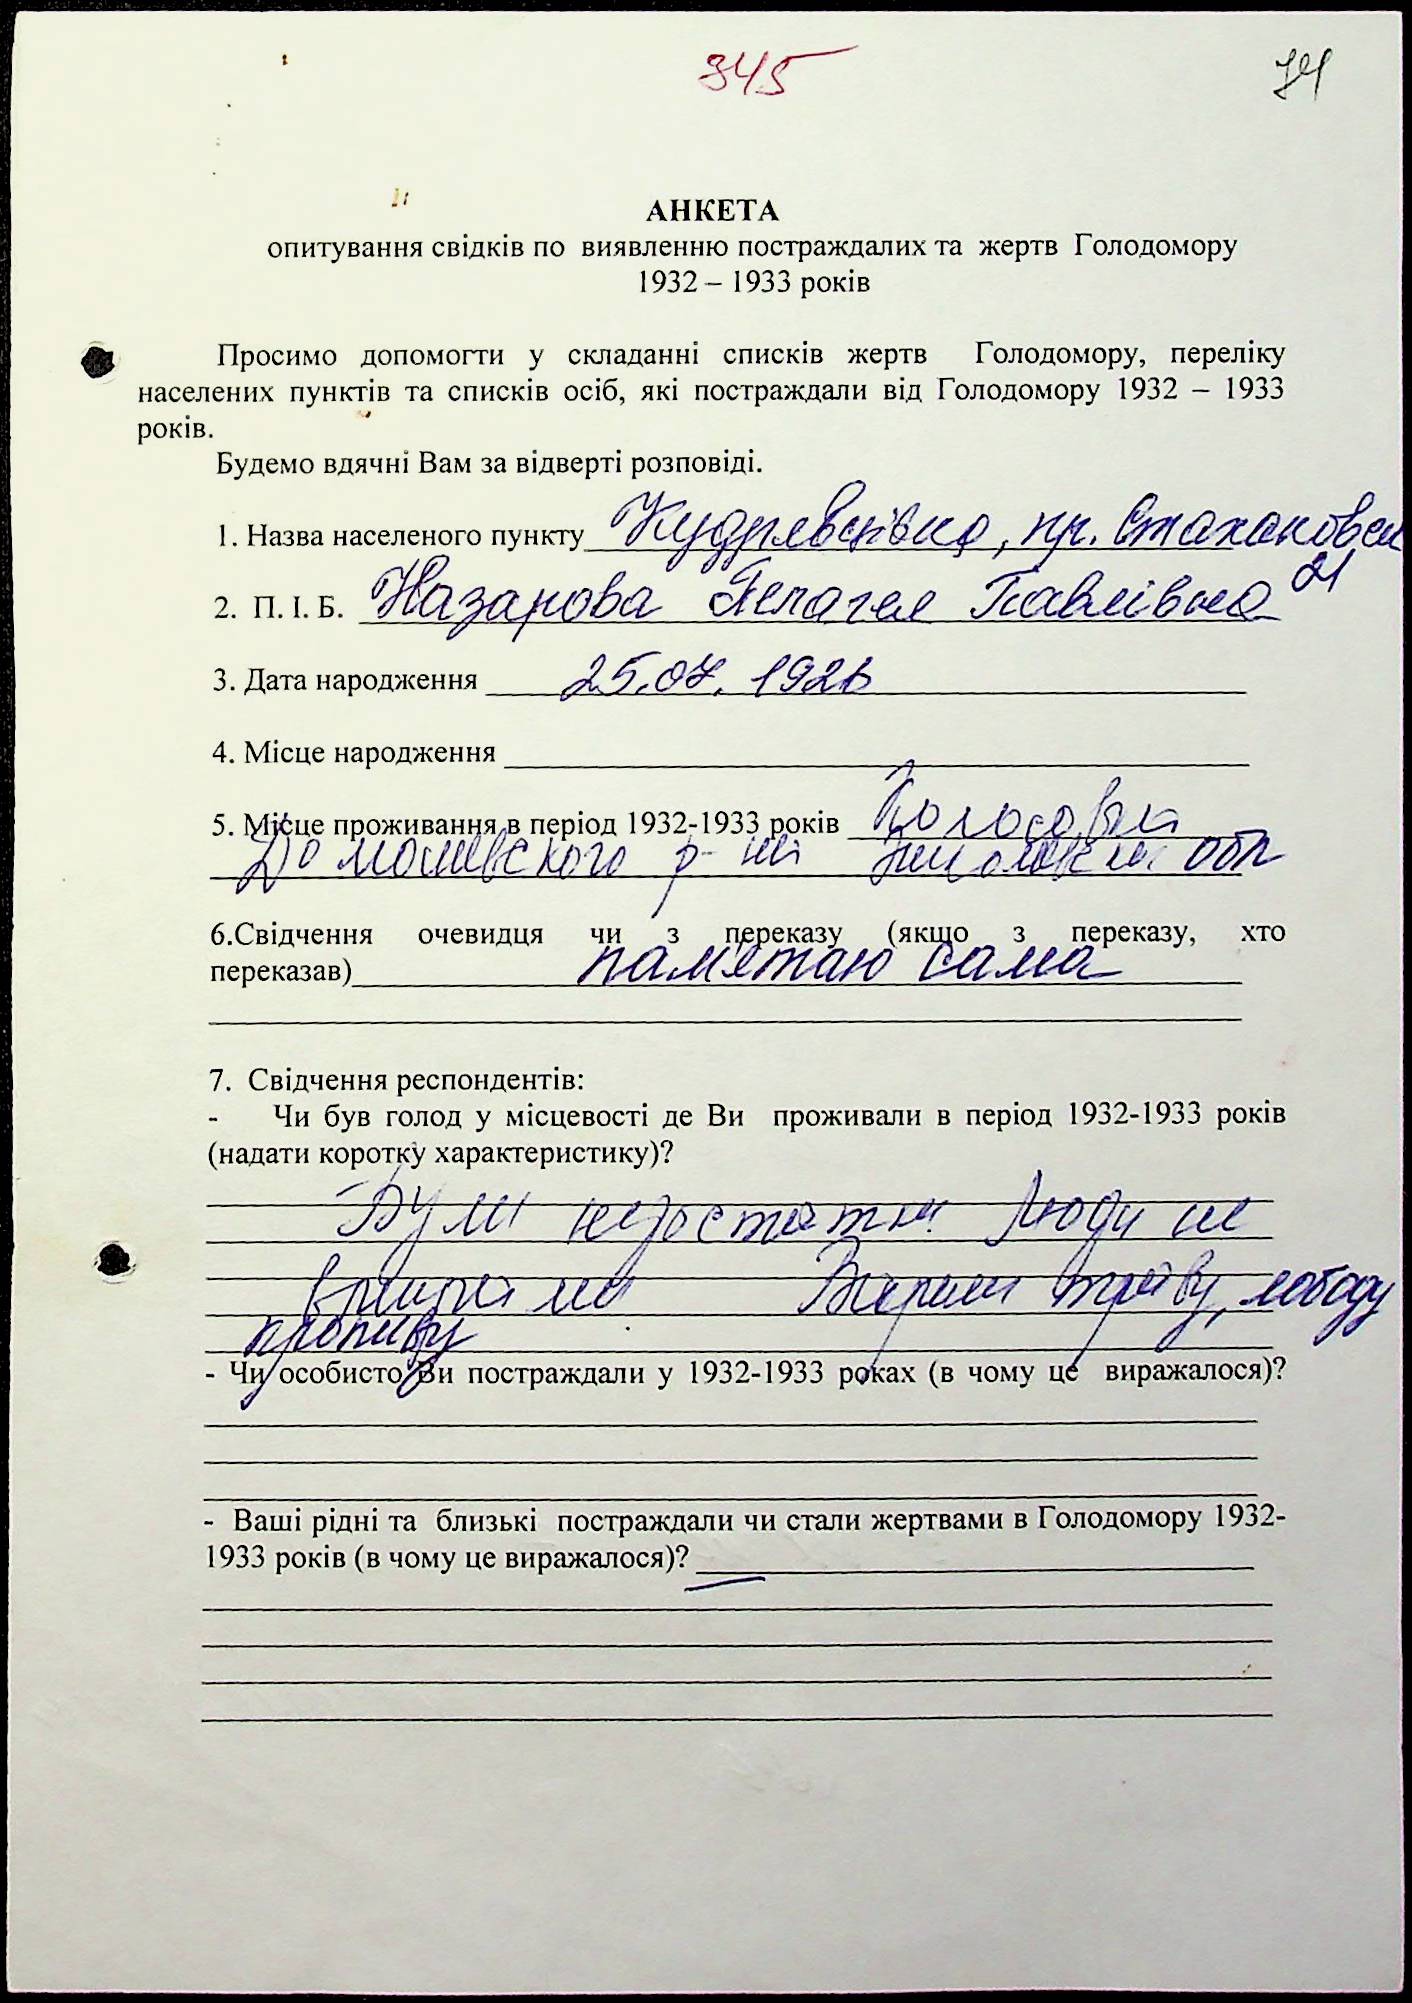 345
74
АНКЕТА
опитування свідків по виявленню постраждалих та жертв Голодомору
1932 – 1933 років
Просимо допомогти у складанні списків жертв Голодомору, переліку
населених пунктів та списків осіб, які постраждали від Голодомору 1932 – 1933
років.
Будемо вдячні Вам за відверті розповіді.
1. Назва населеного пункту Кудрявцівка, пр. Стахановск
21
2. П. І. Б. Назарова Пелагея Павлівна
3. Дата народження 25.07.1926
4. Місце народження
5. Місце проживання в період 1932-1933 років Колосовка
р-на обл
6.Свідчення очевидця чи з переказу (якщо з переказу, хто
переказав) памятаю сама
7. Свідчення респондентів:
- Чи був голод у місцевості де Ви проживали в період 1932-1933 років
(надати коротку характеристику)?
Були недостатки Люди не
вмирали Варили траву, лободу
кропиву
- Чи особисто Ви постраждали у 1932-1933 роках (в чому це виражалося)?
- Ваші рідні та близькі постраждали чи стали жертвами в Голодомору 1932-
1933 років (в чому це виражалося)?